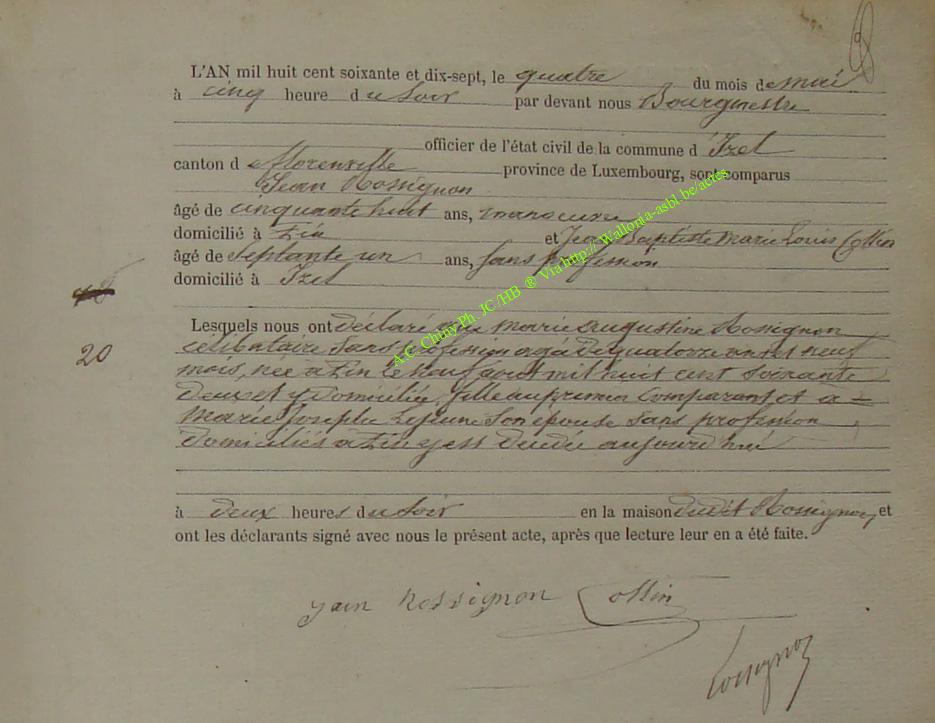 L'AN mil huit cent soixante et dix-sept, le quatre du mois de mai
à cinq heure du Soir par devant nous Bourgmestre
officier de l'état civil de la commune d'Izel
canton de Florenville province de Luxembourg, sont comparus
Jean Rossignon
âgé de cinquante huit ans, manoeuvre
domicilié à Zin et Jean Baptiste Marie Louis Collin
âgé de Septante un ans, Sans profession
domicilié à Izel
Lesquels nous ont déclaré que Marie Augustine Rossignon
20
célibataire Sans profession agée de quatorze ans et neuf
mois, née à Zin le neuf aout mil huit cent Soixante
deux et y domiciliée, fille du premier Comparant et de
Marie Josephe Lejeune Son épouse Sans profession
domiciliés à Zin y est dcédée aujourd'hui
à deux heures du Soir en la maison dudit Rossignon, et
ont les déclarants signé avec nous le présent acte, après que lecture leur en a été faite.
jean Rossignon Collin
Rossignon
A.C. Chiny Ph. JC /HB ® Via http:// Wallonia-asbl.be/actes